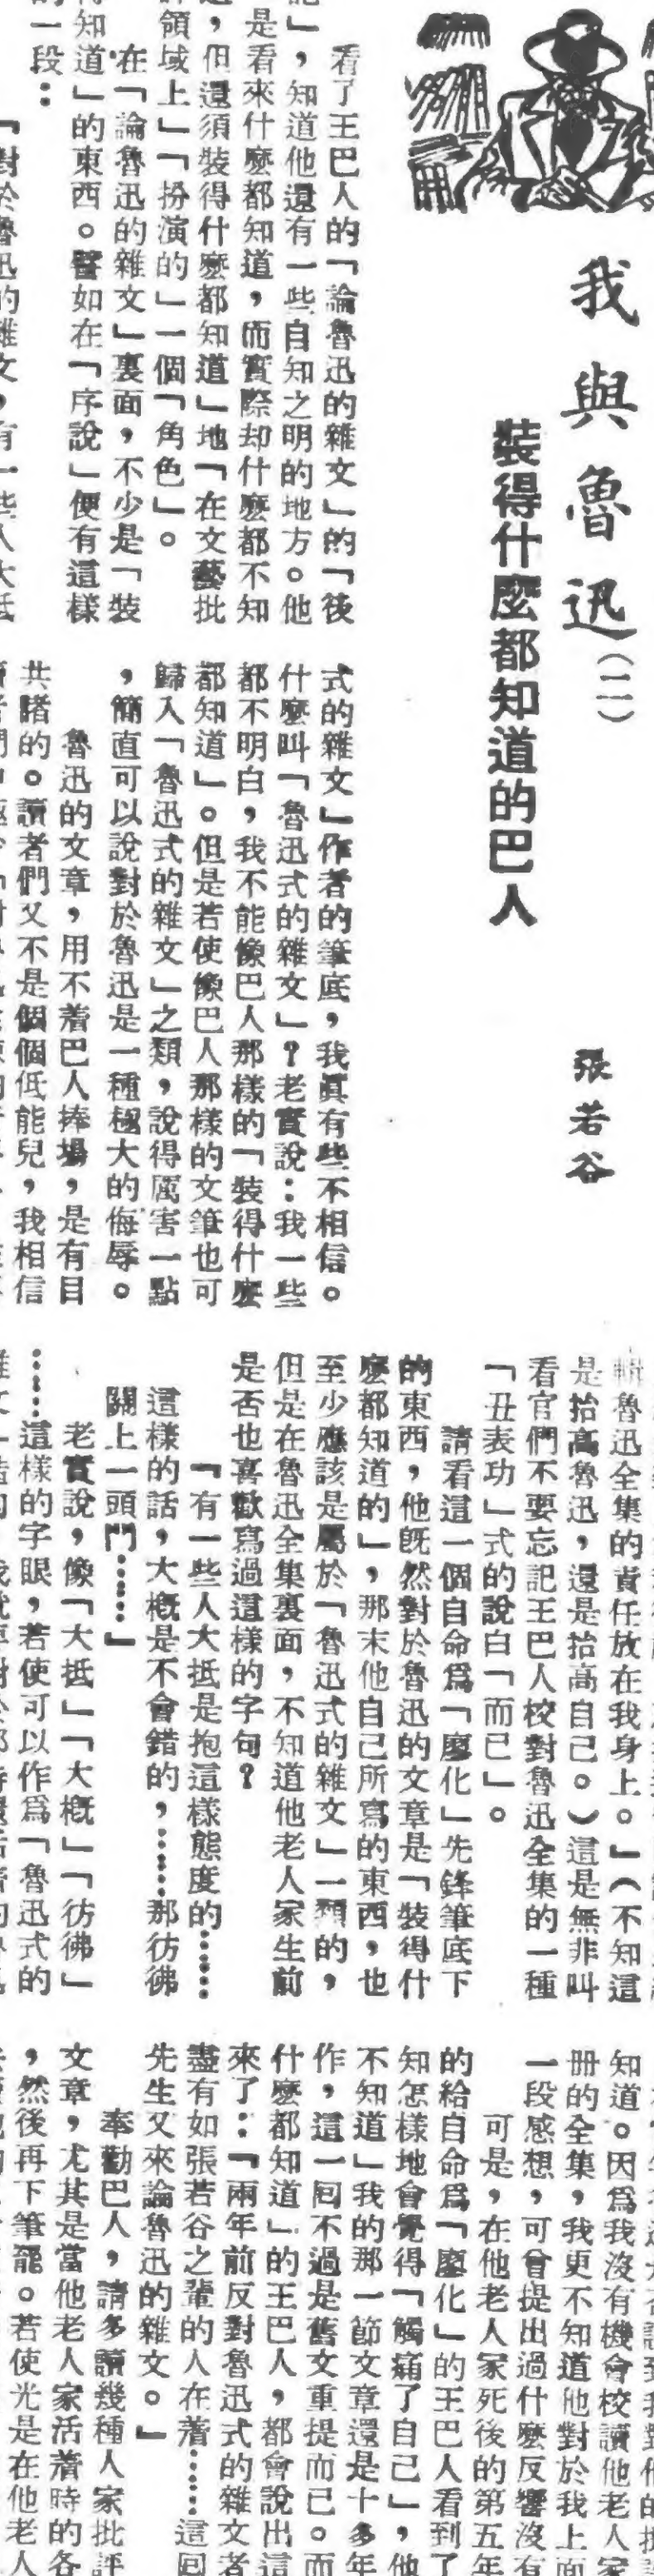 我與魯迅(二)
裝得什麼都知道的巴人
張若谷
看了王巴人的「論魯迅的雜文」的「後
記」，知道他還有一些自知之明的地方。他
是看來什麼都知道，而實際却什麼都不知
道，但還須裝得什麼都知道」地「在文藝批
評領域上」「扮演的」一個「角色」。
在「論魯迅的雜文」裏面，不少是「裝
得知道」的東西。譬如在「序說」便有這樣
的一段：
『對於魯迅的雜文，有一些人大抵
式的雜文』作者的筆底，我眞有些不相信。
什麼叫「魯迅式的雜文」？老實說：我一些
都不明白，我不能像巴人那樣的「裝得什麼
都知道」。但是若使像巴人那樣的文筆也可
歸入「魯迅式的雜文」之類，說得厲害一點
，簡直可以說對於魯迅是一種極大的侮辱。
魯迅的文章，用不着巴人捧場，是有目
共睹的。讀者們又不是個個低能兒，我相信
輯魯迅全集的責任放在我身上。』（不知這
是抬高魯迅，還是抬高自己。）這是無非叫
看官們不要忘記王巴人校對魯迅全集的一種
「丑表功」式的說白「而已」。
請看這一個自命爲「廖化」先鋒筆底下
的東西，他旣然對於魯迅的文章是「裝得什
麼都知道的」，那末他自己所寫的東西，也
至少應該是屬於「魯迅式的雜文」一類的，
但是在魯迅全集裏面，不知道他老人家生前
是否也喜歡寫過這樣的字句？
『有一些人大抵是抱這樣態度的……
這樣的話，大槪是不會錯的，……那彷彿
關上一頭門……』
老實說，像「大抵」「大槪」「彷彿」
……這樣的字眼，若使可以作爲「魯迅式的
知道。因爲我沒有機會校讀他老人家
册的全集，我更不知道他對於我上面
一段感想，可會提出過什麼反響沒有
可是，在他老人家死後的第五年
的給自命爲「廖化」的王巴人看到了
知怎樣地會覺得「觸痛了自己」，他
不知道」我的那一節文章還是十多年
作，這一回不過是舊文重提而已。而
什麼都知道」的王巴人，都會說出這
來了：『兩年前反對魯迅式的雜文者
盡有如張若谷之輩的人在着……這回
先生又來論魯迅的雜文。』
奉勸巴人，請多讀幾種人家批評
文章，尤其是當他老人家活着時的各
，然後再下筆罷。若使光是在他老人